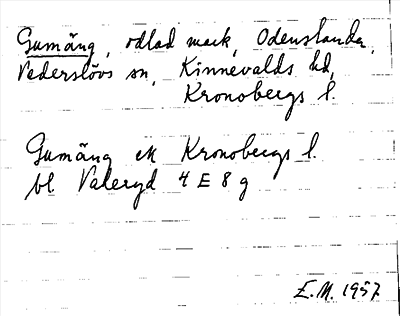 Gumäng, odlad mark, Odenslanda,
Vederslövs sn, Kinnevalds hd,
Kronobergs l.
Gumäng ek Kronobergs l.
bl. Valeryd 4 E 8 g
E.M. 1957